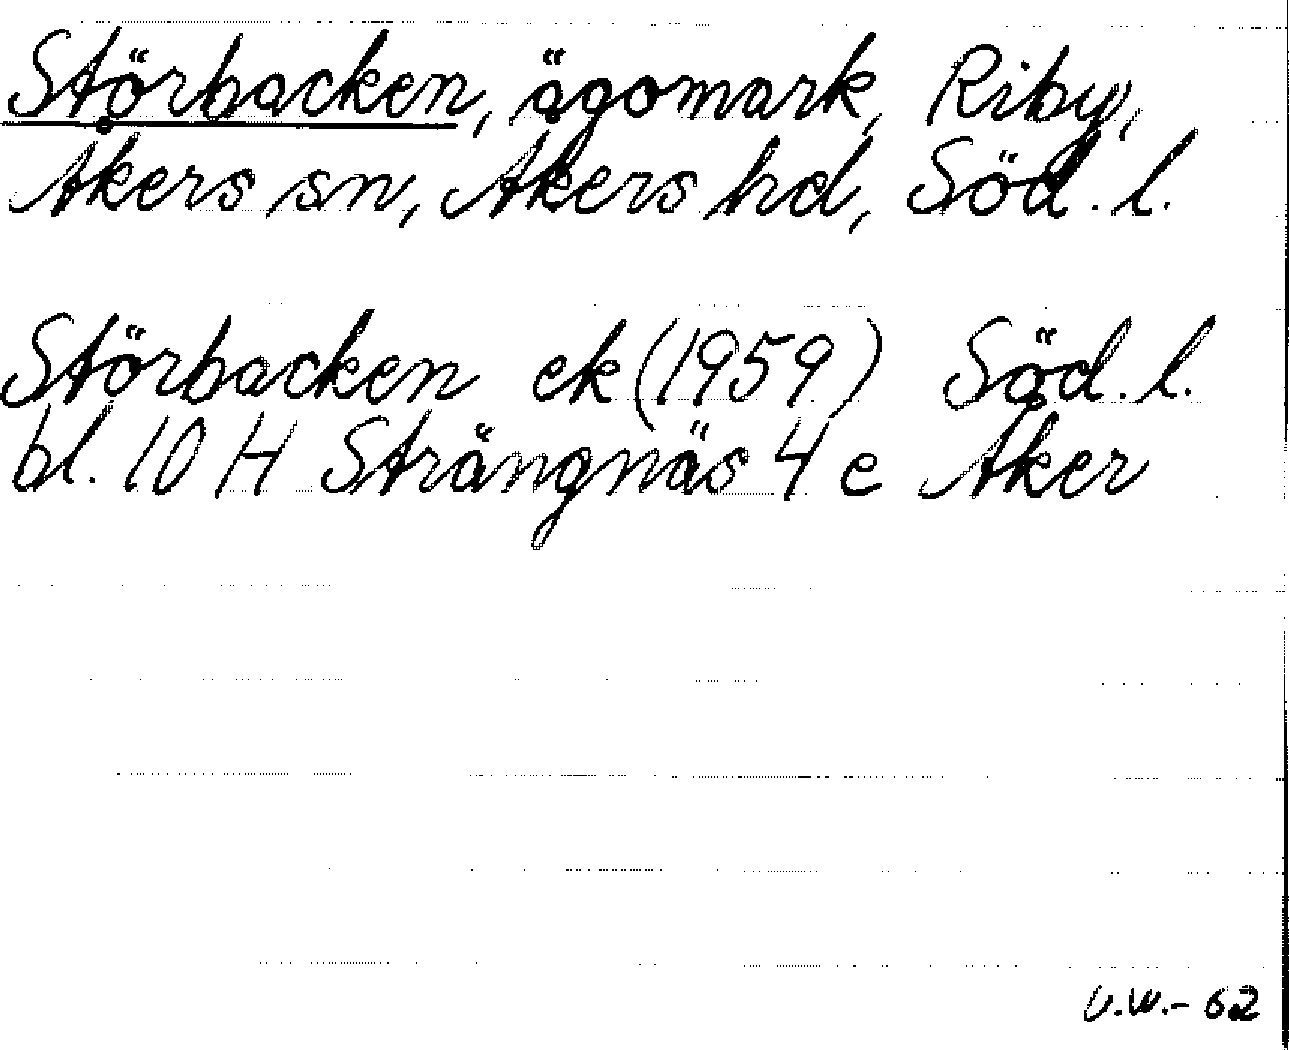 Störbacken, ägomark, Riby,
Åkers sn, Åkers hd, Söd. l.
Störbacken ek (1959) Söd. l.
bl. 10 H Strängnäs 4 e Åker
U.W.- 62